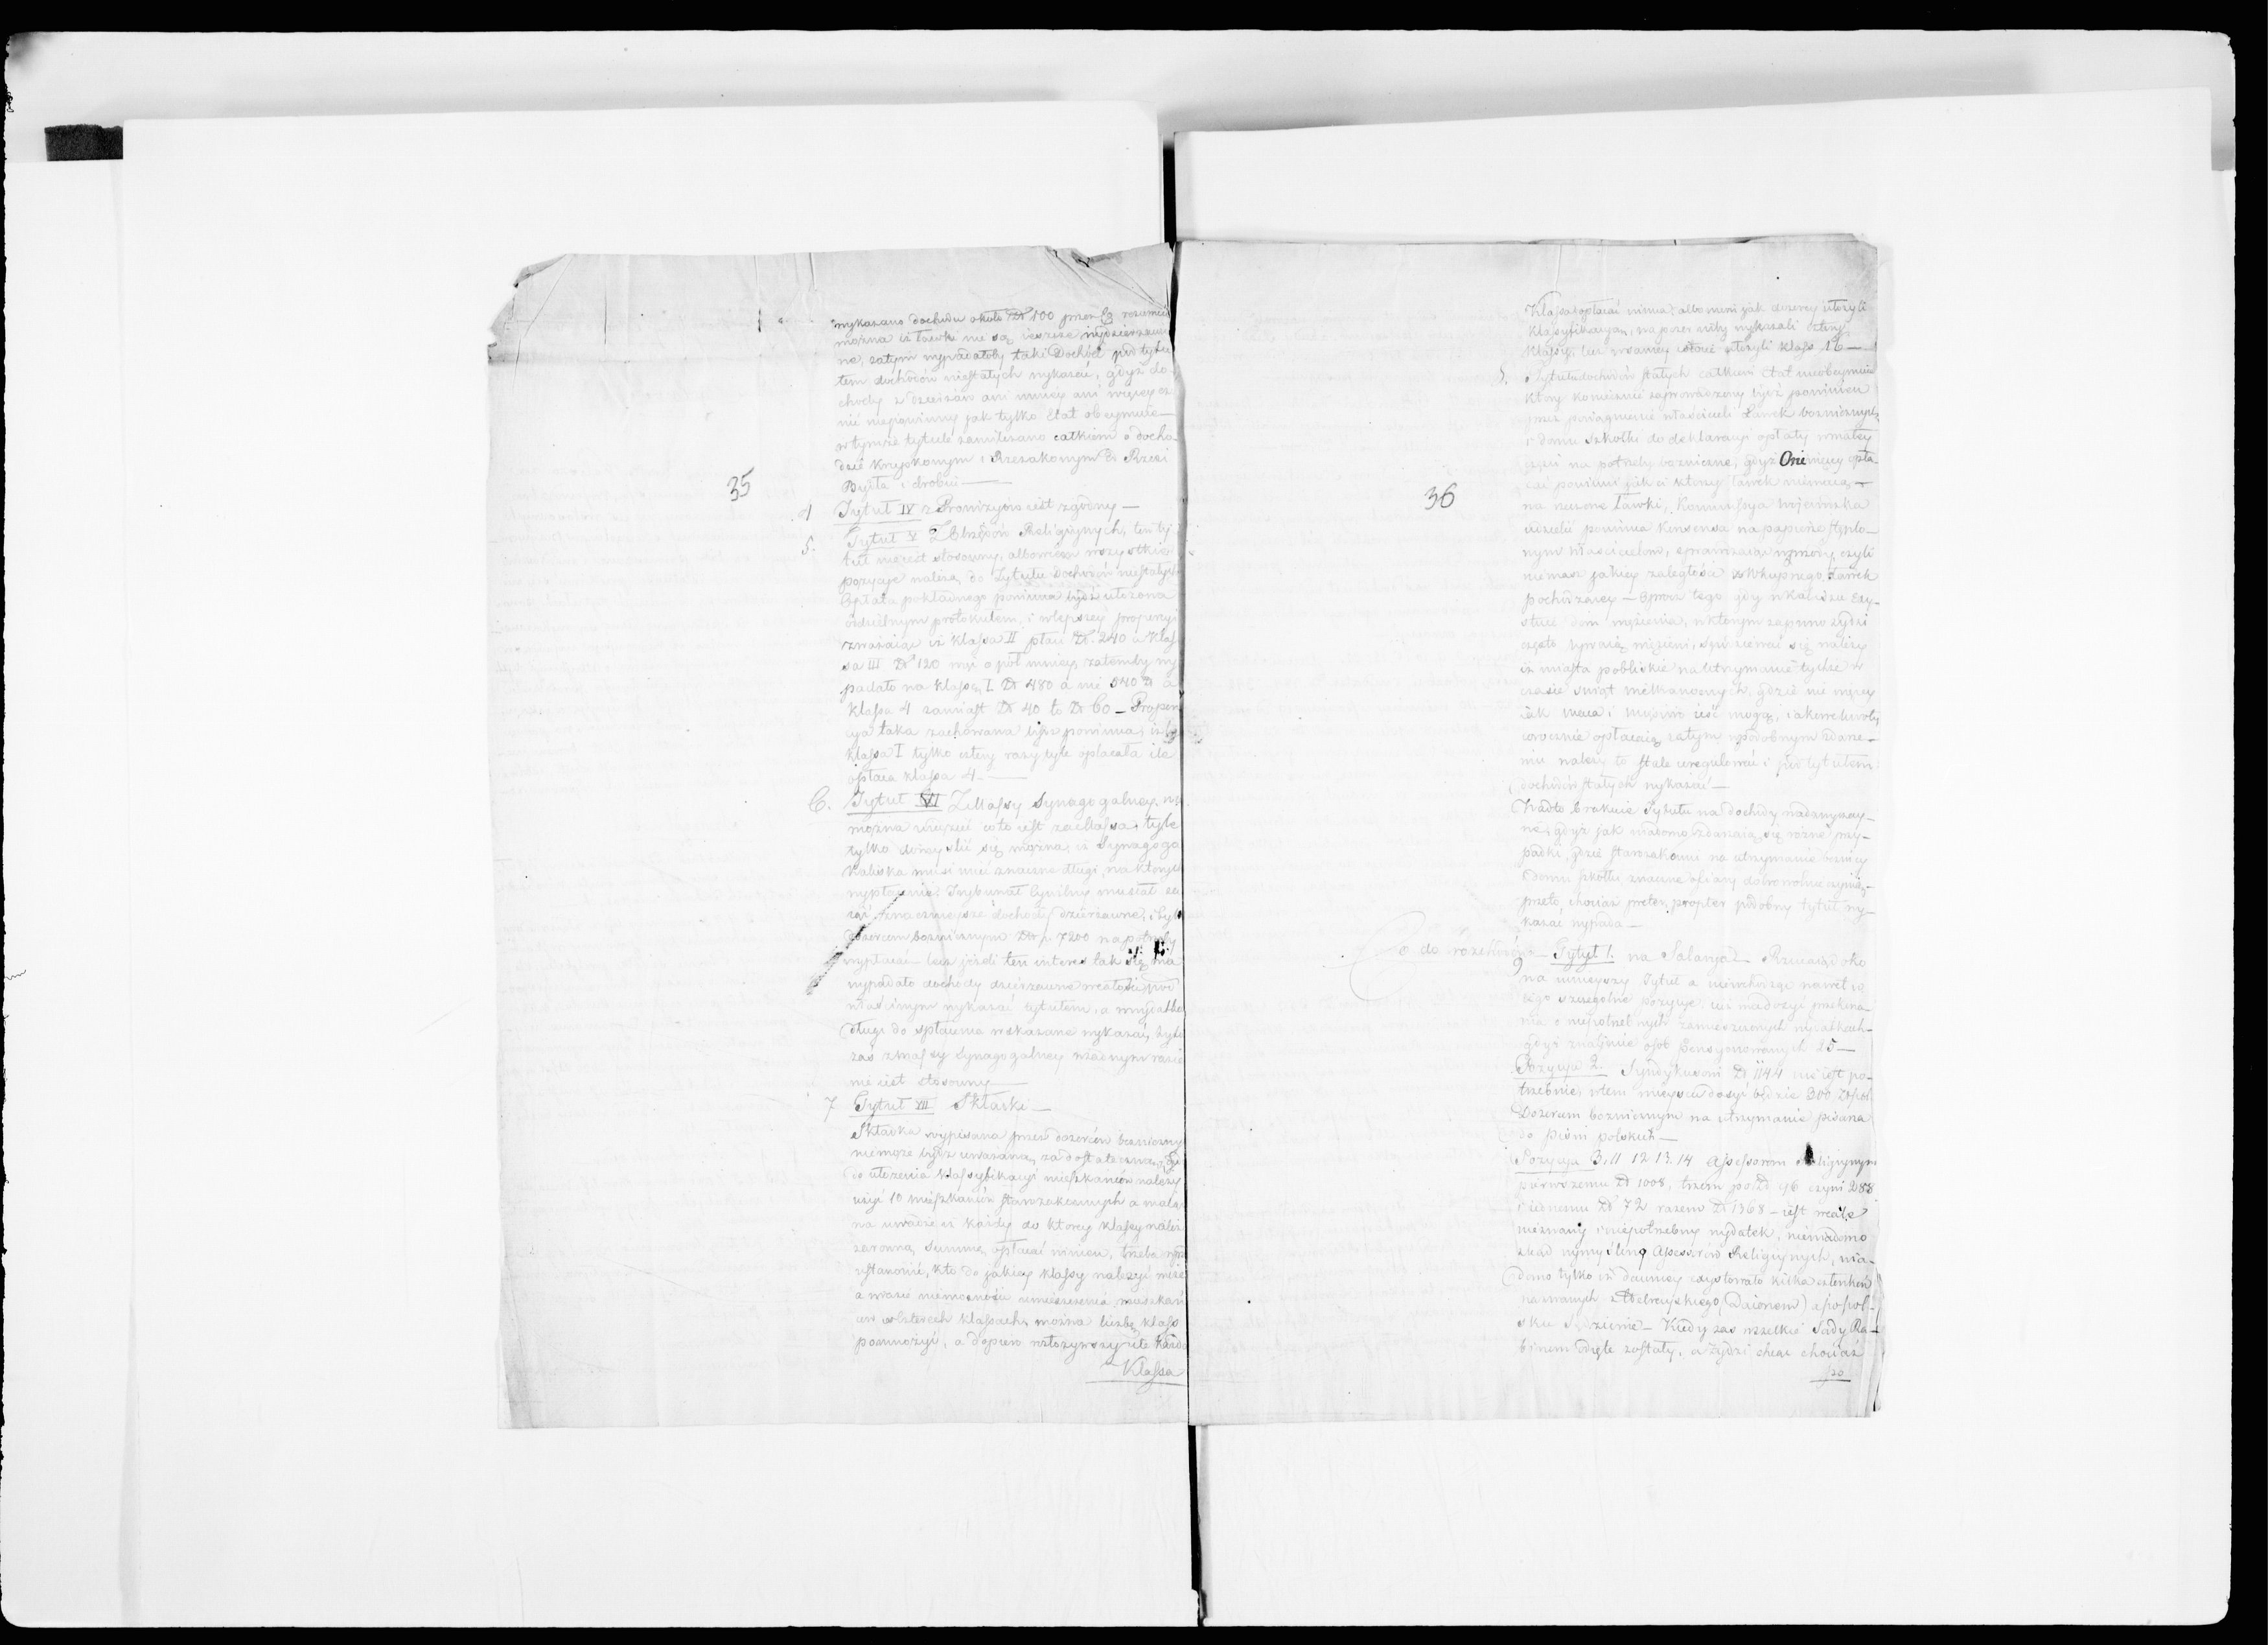 35
wykazano dochodu około Zł 100 przez Ez rozumieć
można iż ławki nie są ieszcze wydzierżawio
ne, zatym wypadałoby taki Dochód pod tytu
łem dochodów niestałych wykazać, gdyż do-
chody z dzierżaw ani mniey ani więcey czy
nić niepowinny jak tylko Etat obeymuie—
w tymże tytule zamilczano całkiem o docho
dzie Krupkowym i Rzezakowym od Rzezi
Bydła i drobiu —
4 Tytuł IV z Prowizyów iest zgodny —
5. Tytuł V Z Obrzędów Religijnych, ten ty
tuł nie iest stosowny, albowiem wszystkie
pozycye należą do Tytułu Dochodów niestałych
Opłata pokładnego powinna bydź ułożona
oddzielnym protokułem, i w lepszey propercyi
zważaiąc iż klassa II płaci Zł 240 a klas
sa III Zł 120 czyli o pół mniey, zatemby wy
padało na klassę I Zł 480 a nie 540 Zł a
klassa 4 zamiast Zł 40 to Zł 60 — Propor
cya taka zachowana bydź powinna, iżby
klassa I tylko cztery razy tyle opłacała ile
opłaca klassa 4. —
6. Tytuł VI Z Massy Synagogalney, nie
można wiedzieć co to iest za Massa, tyle
tylko domyslić się można, iż Synagoga
Kaliska musi mieć znaczne długi, na których
wypłacenie Trybunał Cywilny musiał za
iąć znacznieysze dochody dzierżawne, i tylko
dozorcom bożnicznym Zł p. 7200 na potrzeby
wypłacać — lecz jeżeli ten interes tak się ma
wypadało dochody dzierżawne w całości pod
właściwym wykazać tytułem, a w wydatkach
długi do spłacenia wskazane wykazać, tytuł
zaś z massy Synagogalney w żadnym razie
nie iest stosowny —
7 Tytuł VII Składki —
Składka wypisana przez dozorców bożniczny
nie może bydź uważaną za dostateczną, gdyż
do ułożenia klassyfikacyi mieszkańców należy
użyć 10 mieszkańców starozakonnych a maiąc
na uwadze iż każdy do którey klassy należy
zarowną summę opłacać winien, trzeba wprzód
ustanowić, kto do jakiey klassy należyć może
a w razie niemożności umieszczenia mieszkań
ców w czterech klassach, można liczbę klass
pomnożyć, a dopiero rozłożywszy ile każda
Klassa
36
Klassa opłacać winna; albowiem jak dozorcy ułożyli
klassyfikacyą, na pozór niby wykazali cztery
klassy, lecz w samey istocie ułożyli klass 16 —
8. Tytułu dochodów stałych całkiem Etat nieobeymuie
który koniecznie zaprowadzony bydź powinien
przez pociągnienie właścicieli Ławek bożnicznych
i domu szkoły do deklaracyi opłaty w małey
części na potrzeby bożniczne, gdyż Oni więcey opła
cać powinni jak ci którzy ławek nie maią —
na rzeczone ławki, Kommissya Woiewodzka
udzielić powinna Konsensa na papierze stęplo-
wym właścicielom, sprawdzaiąc wprzódy, czyli
nie masz jakiey zaległości z Wkupnego Ławek
pochodzącey — oprócz tego gdy w Kaliszu exy-
stuie dom więzienia, w którym zapewne żydzi
często bywaią więzieni, spodziewać się należy
iż miasta pobliskie na utrzymanie tychże w
czasie świąt wielkanocnych, gdzie nie więcey
jak maca i mięsiwo ieść mogą, jakowe kwoty
corocznie opłacaią, zatym w podobnym zdarze-
niu należy to stale uregulować i pod tytułem
dochodów stałych wykazać —
Nadto brakuie Tytułu na dochody nadzwyczay-
ne, gdyż jak wiadomo zdarzaią się różne przy-
padki, gdzie starozakonni na utrzymanie bożnicy
domu szkoły znaczne ofiary dobrowolne czynią —
przeto, chociaż preter propter podobny tytuł wy-
kazać wypada —
Co do rozchodów
9 Tytuł 1. na Salarja — Rzuciwszy oko
na ninieyszy Tytuł a nie wchodząc nawet w
iego szczegolne pozycye, iuż ma dosyć przekona-
nia o niepotrzebnych zamieszczonych wydatkach
gdyż znaiduie osób pensyonowanych 25 —
Pozycya 2. Syndykowi Zł 1144 nie iest po-
trzebnie, w tem mieyscu dosyć będzie 300 Zł pol
Dozorom bożnicznym na utrzymanie pisarza
do pism polskich —
Pozycya 3. 11 12 13. 14 Assessorom Religijnym
pierwszemu Zł 1008, trzem po Zł 96 czyni 288
i iednemu Zł 72 razem Zł 1368 — iest wcale
nieznany i niepotrzebny wydatek, niewiadomo
zkąd wymyślono Assessorów Religijnych, wia-
domo tylko iż dawniey exystowało kilka członków
nazwanych z Hebrayskiego (Daionem) a po pol-
sku Sędziemi — Kiedy zaś wszelkie Sądy Ra-
binom odięte zostały, a żydzi chcąc chociaż
po